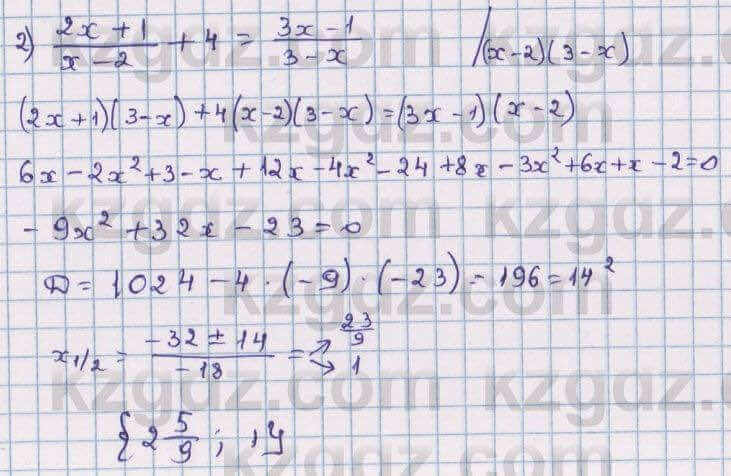 2) (2x + 1)/(x - 2) + 4 = (3x - 1)/(3 - x) /(x-2)(3-x)
(2x+1)(3-x)+4(x-2)(3-x)=(3x-1)(x-2)
6x-2x²+3-x+12x-4x²-24+8x-3x²+6x+x-2=0
-9x²+32x-23=0
D=1024-4·(-9)·(-23)=196=14²
x₁/₂ = (-32±14)/(-18) = ↗ 23/9 ↘ 1
{2 5/9; 1}
kzgdz.com